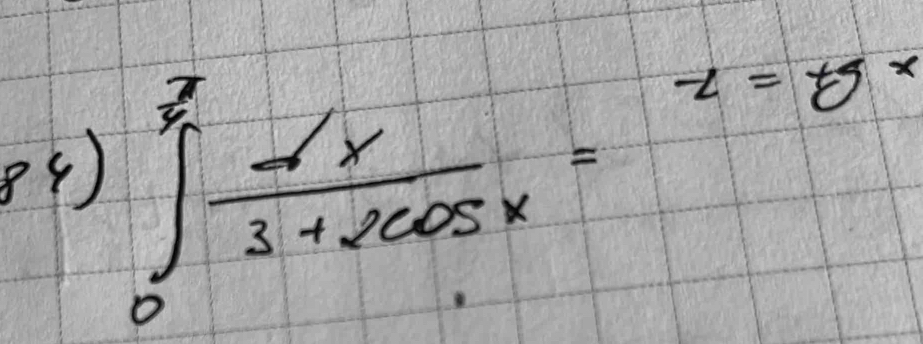 84) ∫₀^{π/4} dx / (3 + 2cos x) = t = tg x